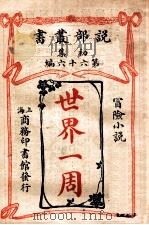 説部叢書
初集
第六十六編
冒險小說
世界一周
上海
商務印書館發行